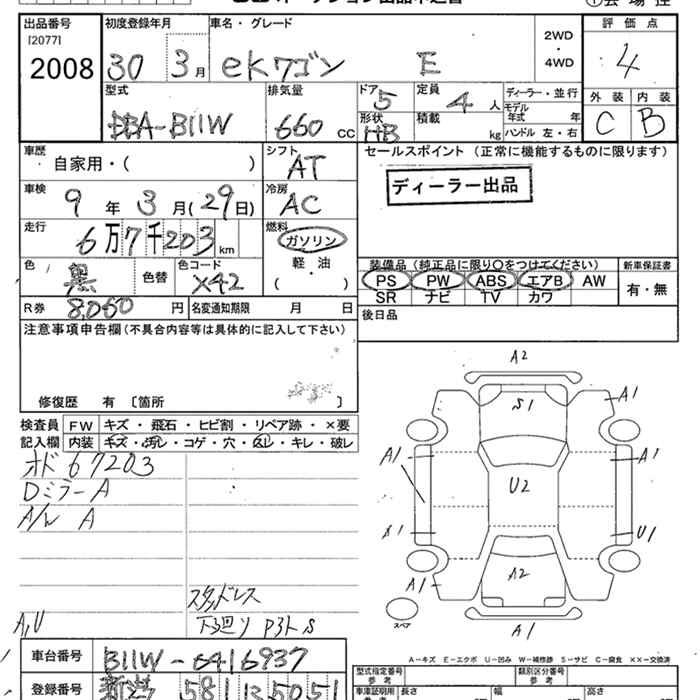 出品番号 初度登録年月 車名・グレード 2WD・4WD 評価点
[2077]
2008 30 3月 ekワゴン E 4
型式 排気量 ドア 5 定員 4人 ディーラー・並行 外装 内装
DBA-B11W 660 CC 形状 HB 積載 kg モデル年式 年 ハンドル 左・右 C B
車歴 自家用・( ) シフト AT セールスポイント (正常に機能するものに限ります)
車検 9年3月(29日) 冷房 AC ディーラー出品
走行 6万7千203km 燃料 ガソリン
軽・油
( )
色 黒 色替 色コード X42 装備品(純正品に限り〇をつけてください) 新車保証書
PS PW ABS エアB AW 有・無
SR ナビ TV カワ
R券 8,060円 名変通知期限 月 日 後日品
注意事項申告欄(不具合内容等は具体的に記入して下さい)
修復歴 有 〔箇所 〕
検査員記入欄 FW キズ・飛石・ヒビ割・リペア跡・×要
内装 キズ・汚レ・コゲ・穴・スレ・キレ・破レ
オド 67203
Dミラー A
A/w A
スタッドレス
A,U 下廻り P3ト S
A2
S1 A1
A1 A1
U2
A1 U1
A1 A2
スペア A1
A-キズ E-エクボ U-凹み W-補修跡 S-サビ C-腐食 ××-交換済
車台番号 B11W-6416937
型式指定番号 類別区分番号
参考 参考
登録番号 581 5051
長さ 幅 高さ